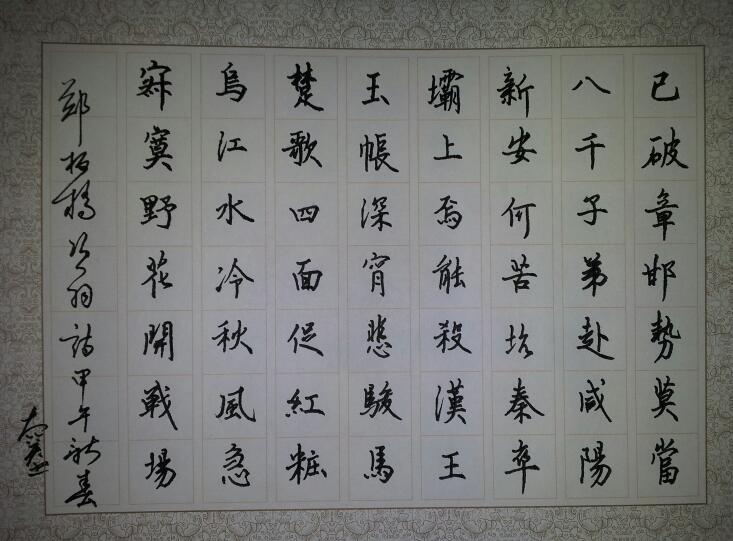 已破章邯勢莫當
八千子弟赴咸陽
新安何苦坑秦卒
壩上焉能殺漢王
玉帳深宵悲駿馬
楚歌四面促紅粧
烏江水冷秋風急
寂寞野花開戰場
鄭板橋項羽詩甲午新春